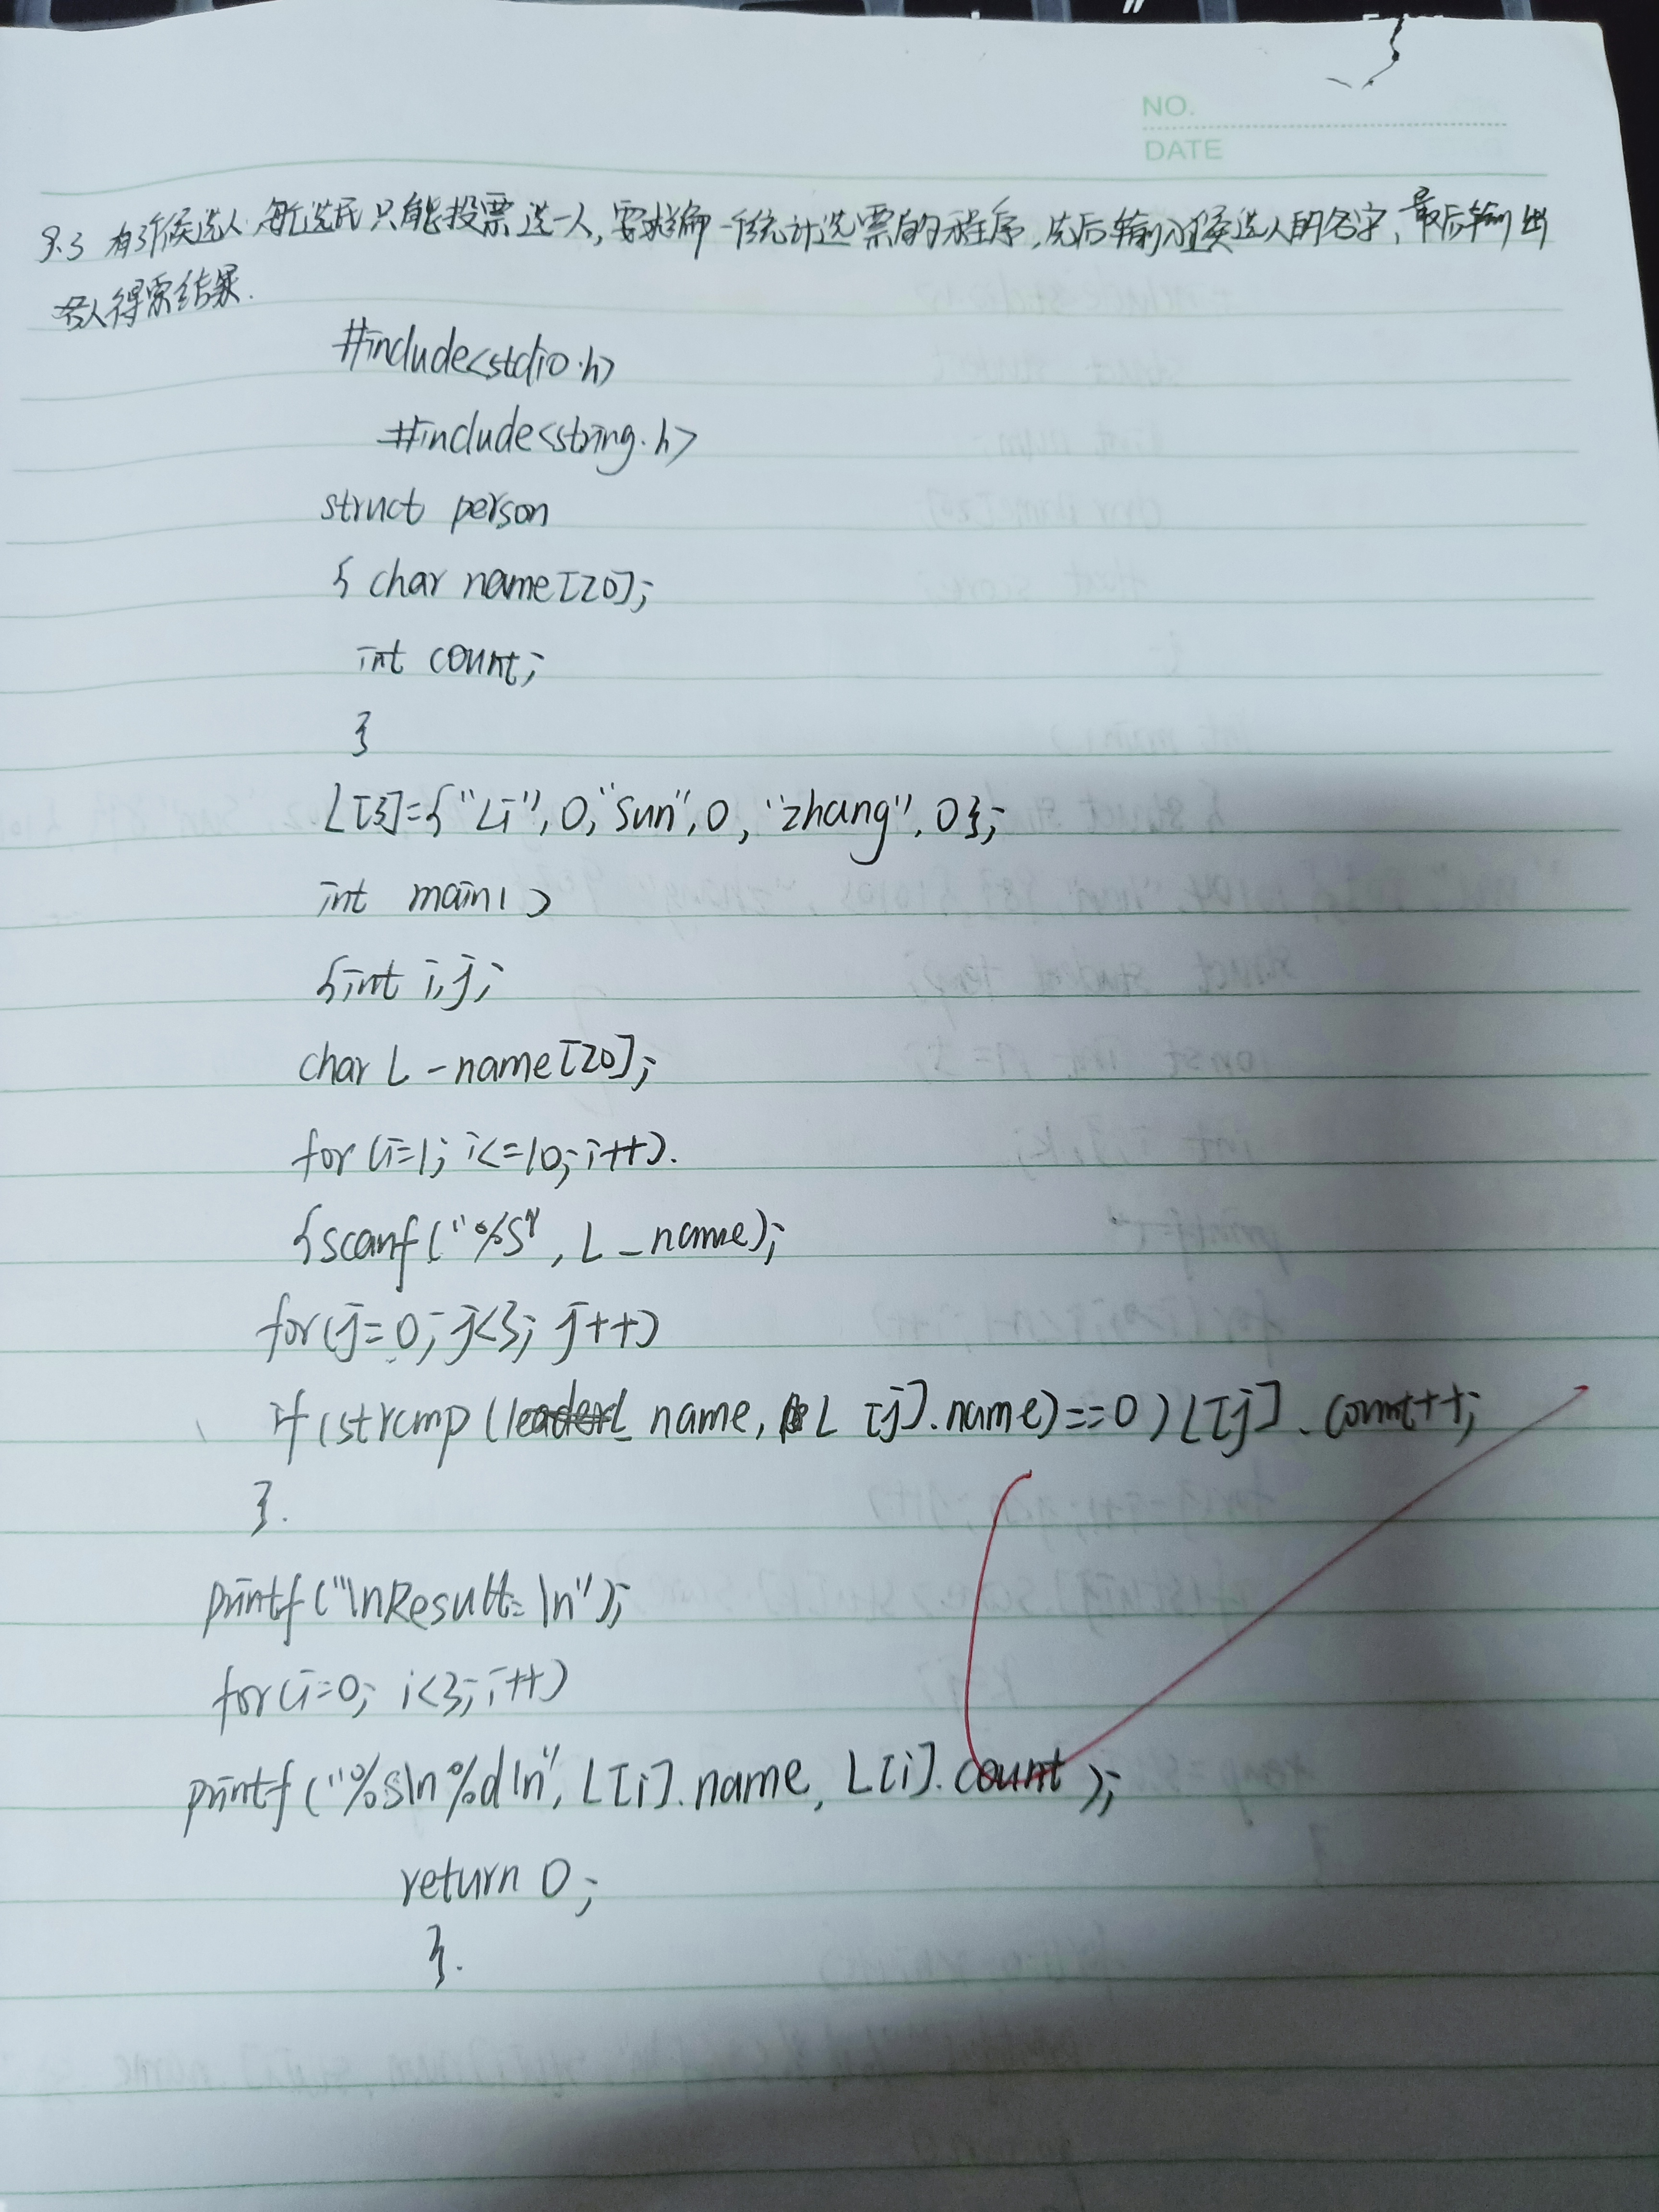 NO.
DATE
9.3 有3个候选人,每个选民只能投票选一人,要求编一个统计选票的程序,先后输入候选人的名字,最后输出
各人得票结果.
#include<stdio.h>
#include<string.h>
struct person
{ char name[20];
int count;
}
L[3]={"Li",0,"Sun",0,"zhang",0};
int main()
{int i,j;
char L_name[20];
for(i=1; i<=10; i++).
{scanf("%s", L_name);
for(j=0; j<3; j++)
if(strcmp(L_name, L[j].name)==0) L[j].count++;
}.
printf("\nResult:\n");
for(i=0; i<3; i++)
printf("%s\n%d\n", L[i].name, L[i].count);
return 0;
}.